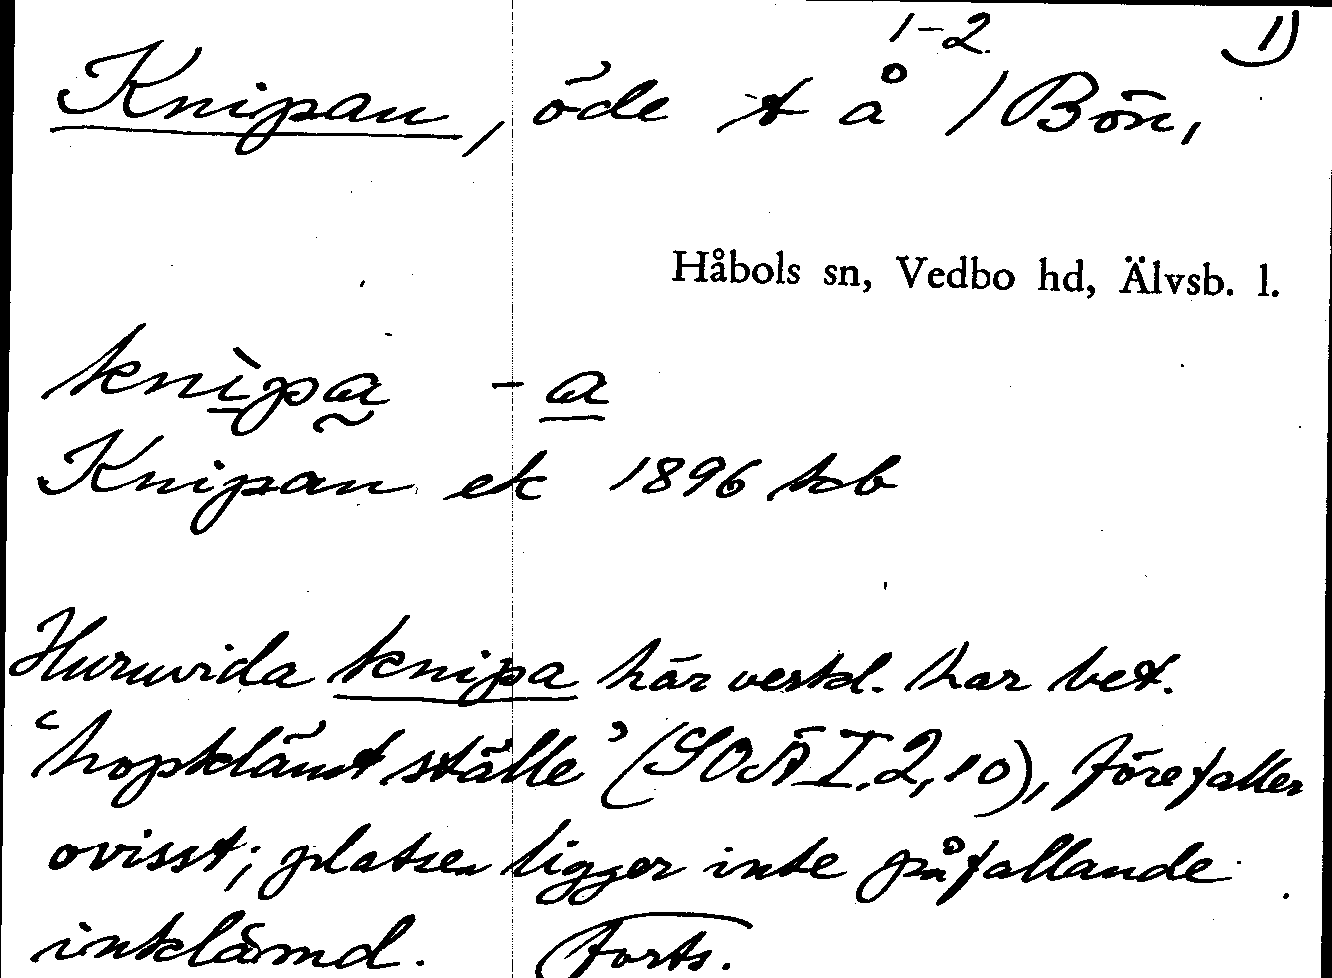 1-2 1)
Knipan, öde t å /Bön,
Håbols sn, Vedbo hd, Älvsb. l.
knìpa -a
Knipan ek 1896 hb
Huruvida knipa här verkl. har bet.
‘hopklämt ställe’ (SOÄ I.2,10), förefaller
ovisst; platsen ligger inte påfallande
inklämd. Forts.